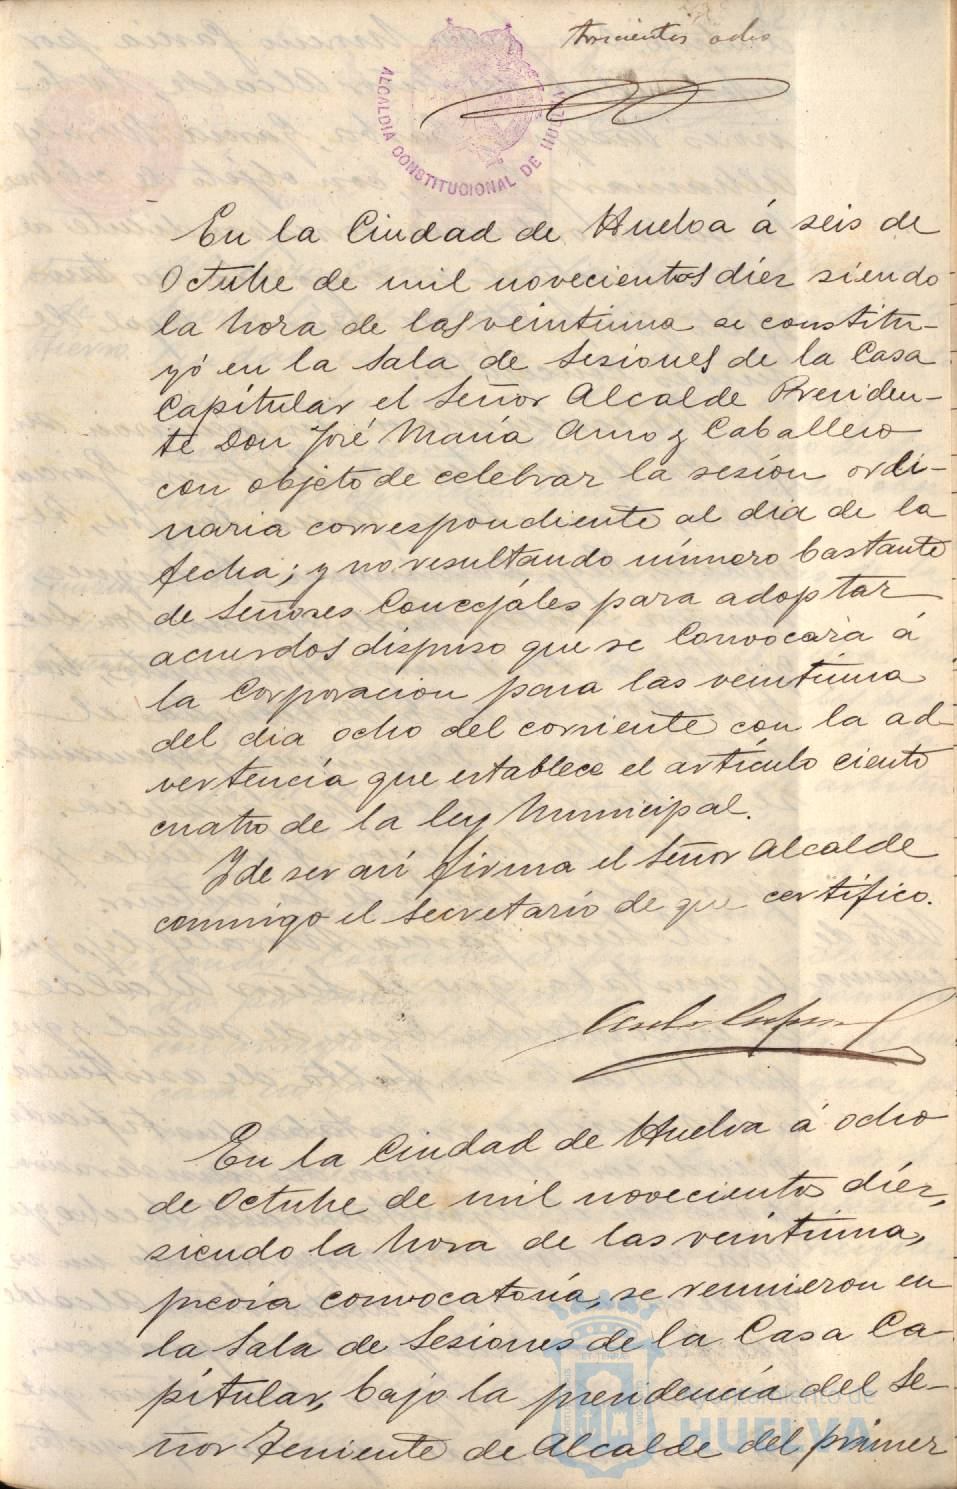 trescientos ocho
ALCALDIA CONSTITUCIONAL DE HUELVA
En la Ciudad de Huelva á seis de
Octubre de mil novecientos diez siendo
la hora de las veintiuna se constitu-
yó en la Sala de Sesiones de la Casa
Capitular el Señor Alcalde Presiden-
te Don José María Amo y Caballero
con objeto de celebrar la sesión ordi-
naria correspondiente al dia de la
fecha; y no resultando número bastante
de Señores Concejales para adoptar
acuerdos dispuso que se Convocara á
la Corporacion para las veintiuna
del dia ocho del corriente con la ad-
vertencia que establece el artículo ciento
cuatro de la ley Municipal.
Y de ser asi firma el Señor Alcalde
conmigo el Secretario de que certifico.
En la Ciudad de Huelva á ocho
de Octubre de mil novecientos diez,
siendo la hora de las veintiuna,
previa convocatoria, se reunieron en
la Sala de Sesiones de la Casa Ca-
pitular, bajo la presidencia del Se-
ñor Teniente de Alcalde del primer
Ayuntamiento de
HUELVA